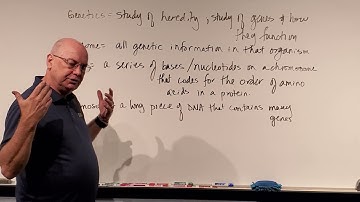 Genetics = study of heredity, study of genes & how
they function
ome = all genetic information in that organism
a series of bases/nucleotides on a chromosome
that codes for the order of amino
acids in a protein.
a long piece of DNA that contains many
genes